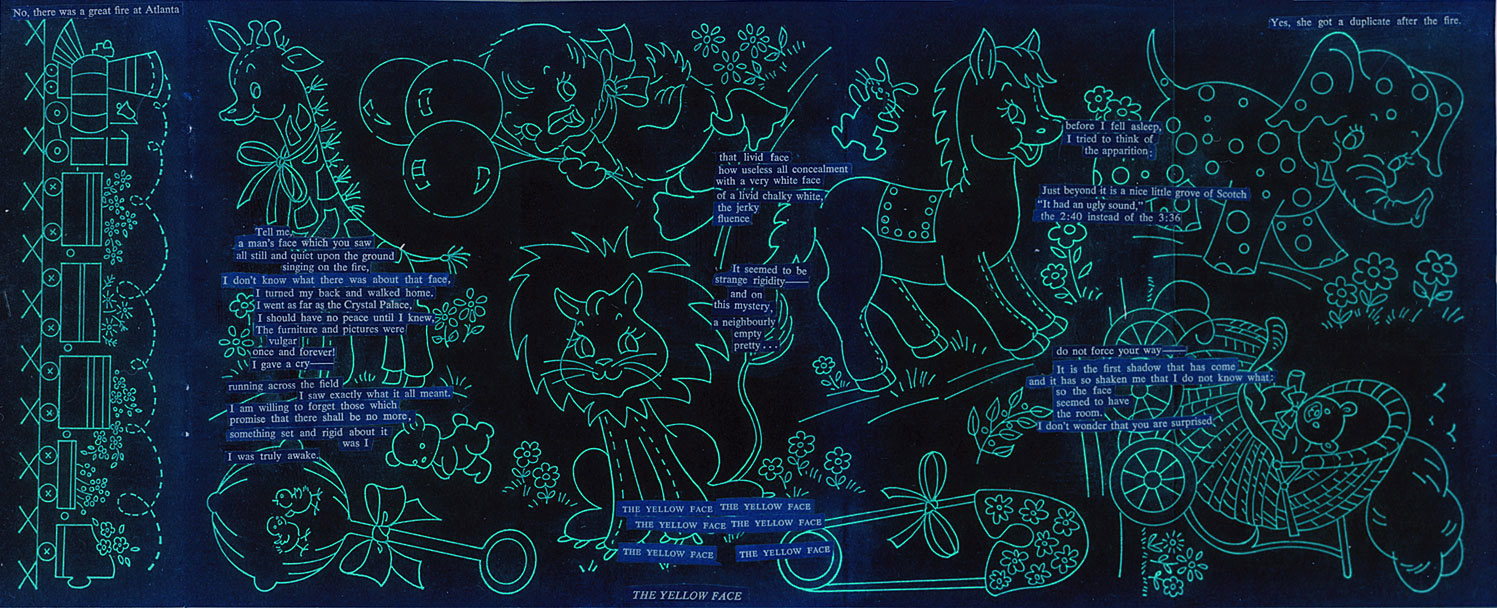 No, there was a great fire at Atlanta
Yes, she got a duplicate after the fire.
Tell me,
a man's face which you saw
all still and quiet upon the ground
singing on the fire,
I don't know what there was about that face,
I turned my back and walked home.
I went as far as the Crystal Palace,
I should have no peace until I knew,
The furniture and pictures were
vulgar
once and forever!
I gave a cry——
running across the field
I saw exactly what it all meant.
I am willing to forget those which
promise that there shall be no more,
something set and rigid about it
was I
I was truly awake.
that livid face
how useless all concealment
with a very white face
of a livid chalky white,
the jerky
fluence
It seemed to be
strange rigidity——
and on
this mystery,
a neighbourly
empty
pretty . . .
THE YELLOW FACE THE YELLOW FACE
THE YELLOW FACE THE YELLOW FACE
THE YELLOW FACE THE YELLOW FACE
THE YELLOW FACE
before I fell asleep,
I tried to think of
the apparition:
Just beyond it is a nice little grove of Scotch
“It had an ugly sound,”
the 2:40 instead of the 3:36
do not force your way——
It is the first shadow that has come
and it has so shaken me that I do not know what:
so the face
seemed to have
the room.
I don't wonder that you are surprised,